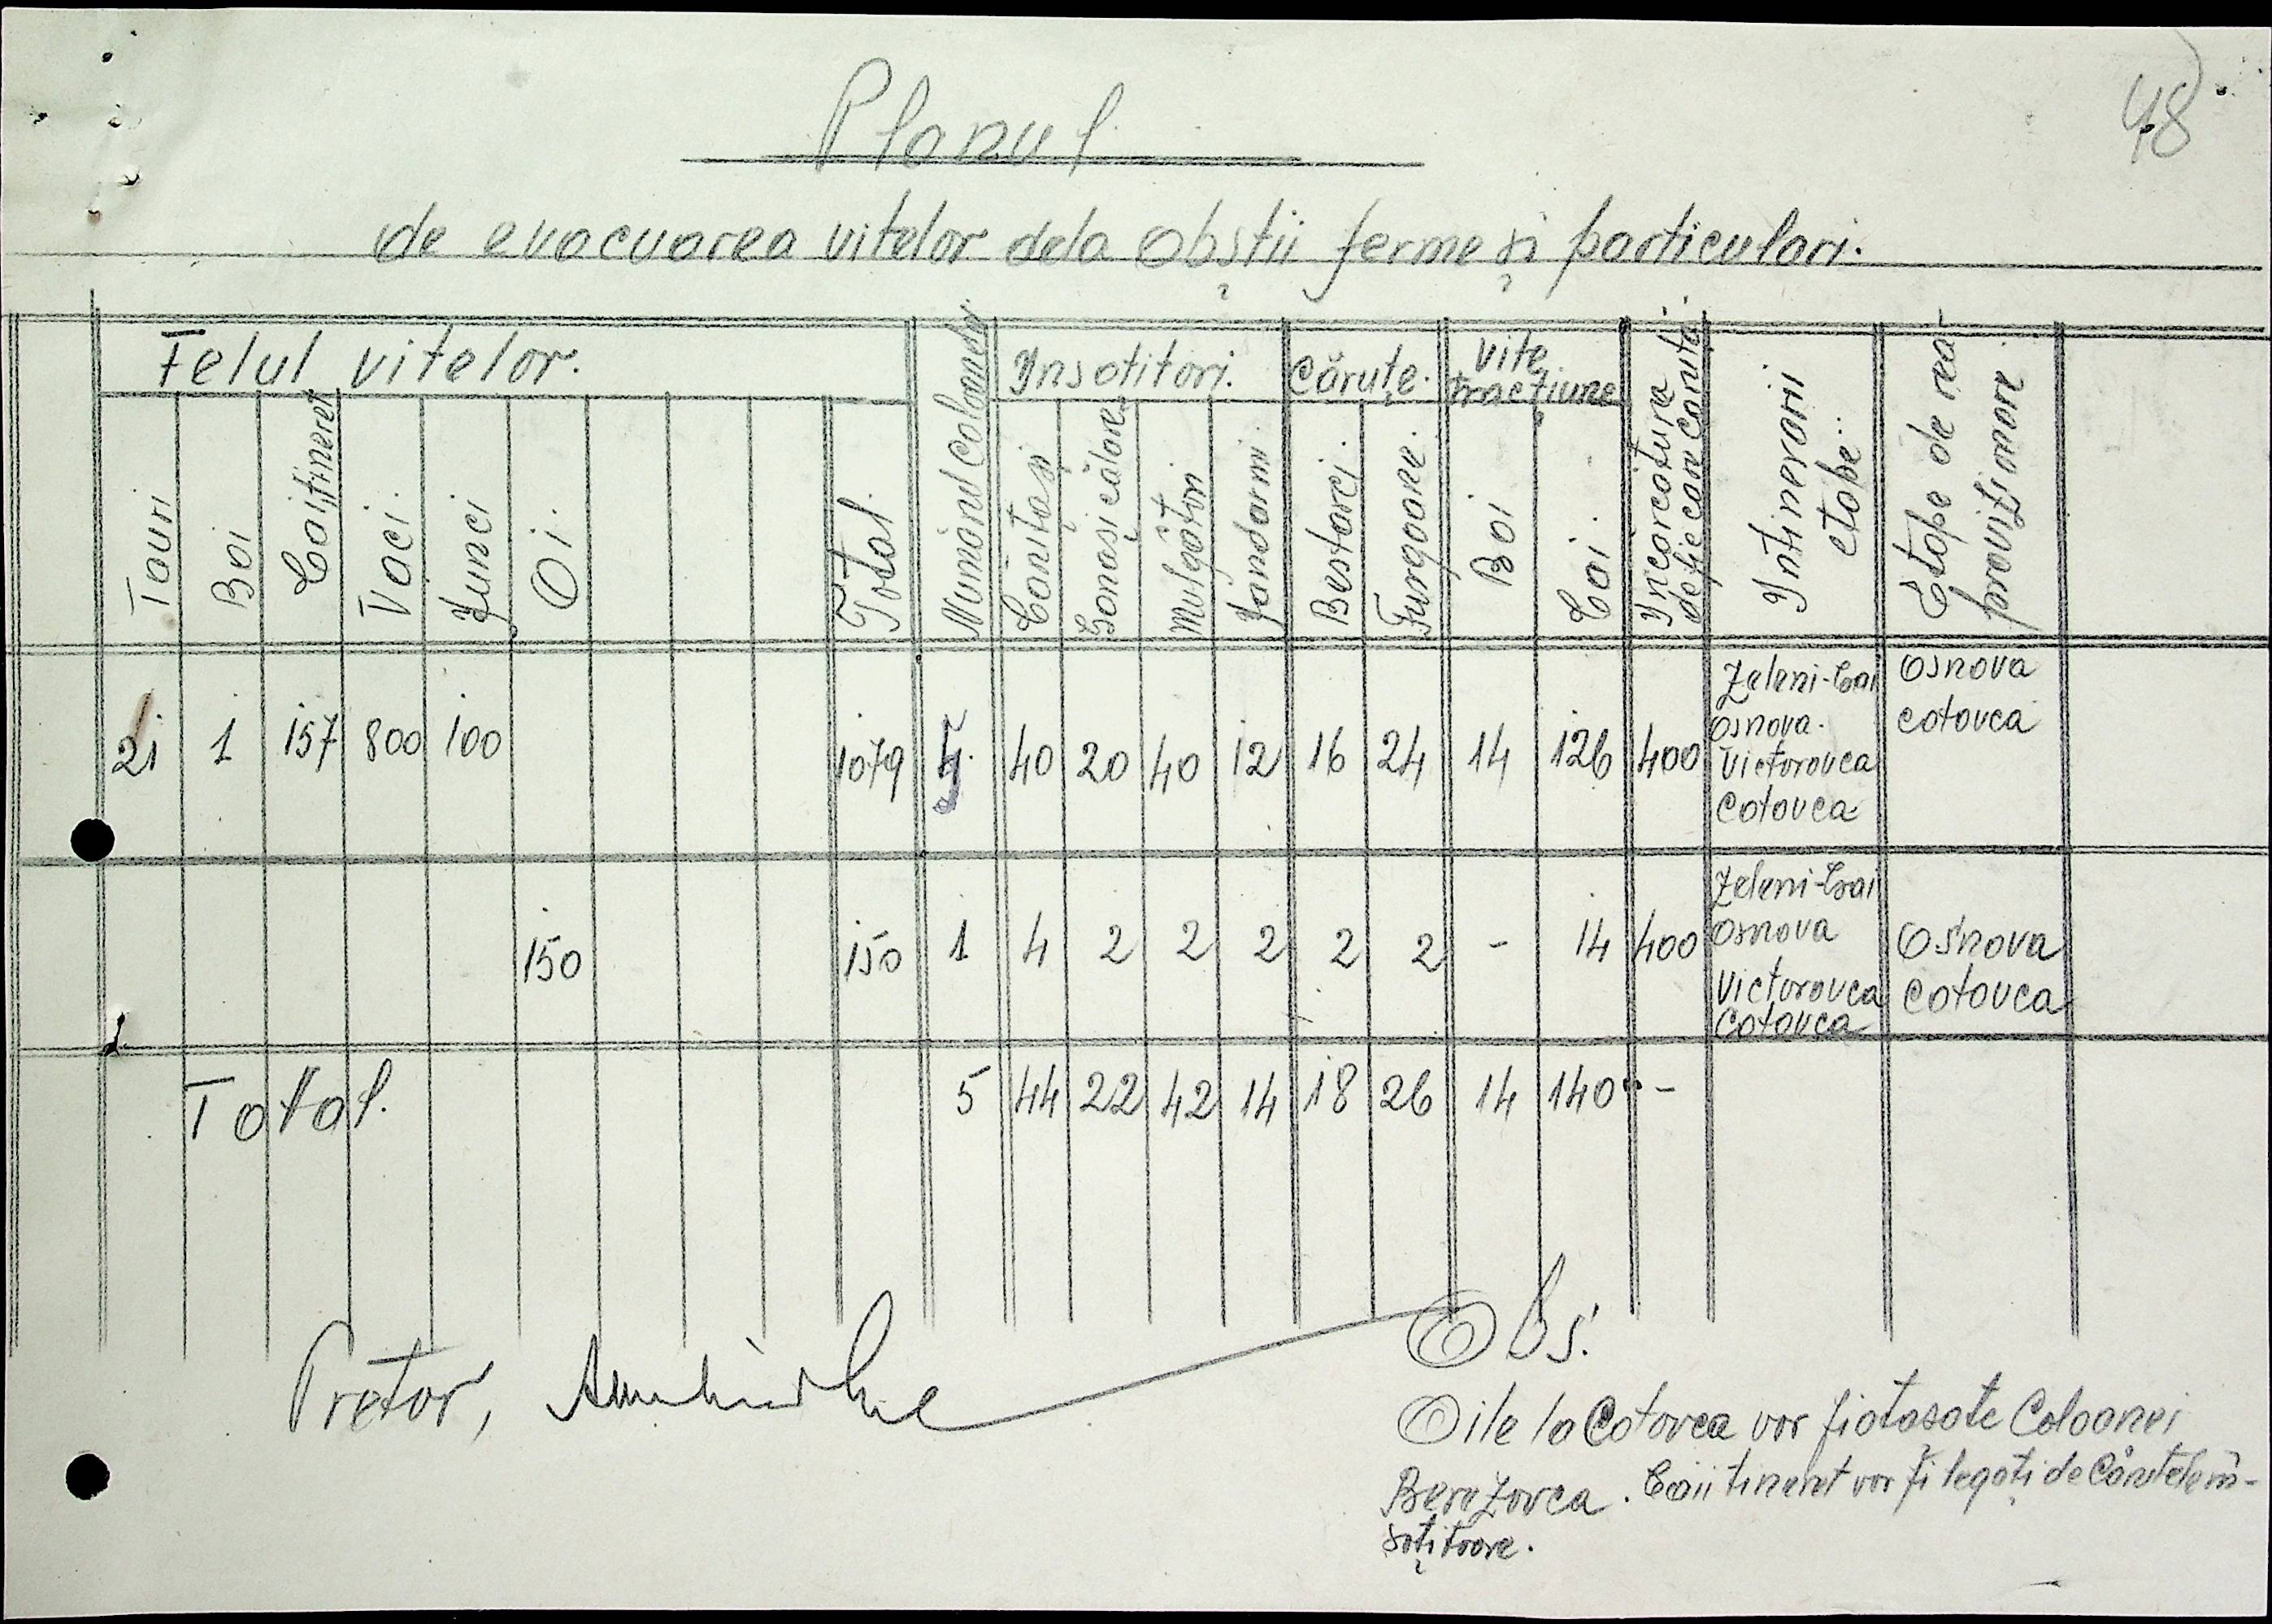 48
Planul
de evacuarea vitelor dela Obștii ferme și particulari.
Felul vitelor.
Numărul Coloanelor
Insotitori.
Cărute.
Vite tracțiune
Incarcatura de fie care caruta
Intinerarii etape..
Etape de rea-
provizionare
Tauri
Boi
Cai, tineret
Vaci.
Junci
Oi.
Total.
Cărutași
Gonasi călare
Mulgători
Jandarmi.
Bestarci.
Furgoane.
Boi
Cai.
21 1 157 800 100 1079 4. 40 20 40 12 16 24 14 126 400
Zeleni-Gai
Osnova.
Victorovca
Cotovca
Osnova
Cotovca
150 150 1 4 2 2 2 2 2 - 14 400
Zeleni-Gai
Osnova
Victorovca
Cotovca
Osnova
Cotovca
Total. 5 44 22 42 14 18 26 14 140 -
Pretor,
Obs.
Oile la Cotovca vor fi atasate Coloanei
Berezovca. Caii tineret vor fi legați de Căruțele în-
soțitoare.